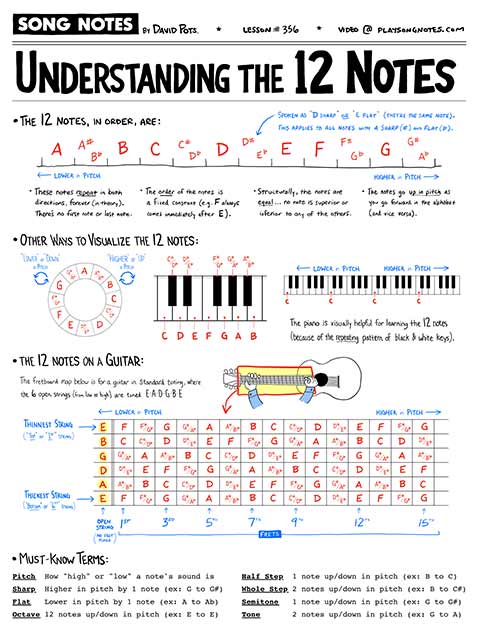 SONG NOTES BY DAVID POTS. * LESSON #356 * VIDEO @ PLAYSONGNOTES.COM
UNDERSTANDING THE 12 NOTES
• THE 12 NOTES, IN ORDER, ARE:
SPOKEN AS "D SHARP" OR "E FLAT" (THEY'RE THE SAME NOTE).
THIS APPLIES TO ALL NOTES WITH A SHARP (#) AND FLAT (b).
A A# Bb B C C# Db D D# Eb E F F# Gb G G# Ab
← LOWER in PITCH HIGHER in PITCH →
• These notes repeat in both directions, forever (in theory). There's no first note or last note.
• The order of the notes is a fixed construct (e.g. F always comes immediately after E).
• Structurally, the notes are equal... no note is superior or inferior to any of the others.
• The notes go up in pitch as you go forward in the alphabet (and vice versa).
• OTHER WAYS TO VISUALIZE THE 12 NOTES:
"LOWER" or "DOWN" in Pitch
"HIGHER" or "UP" in Pitch
A B C D E F G
C# Db D# Eb F# Gb G# Ab A# Bb
C D E F G A B
← LOWER in PITCH HIGHER in PITCH →
C C C C
The piano is visually helpful for learning the 12 notes
(because of the repeating pattern of black & white keys).
• THE 12 NOTES ON A GUITAR:
The fretboard map below is for a guitar in standard tuning, where
the 6 open strings (from low to high) are tuned E A D G B E
← LOWER in PITCH HIGHER in PITCH →
THINNEST STRING
E F F# Gb G G# Ab A A# Bb B C C# Db D D# Eb E F F# Gb G
B C C# Db D D# Eb E F F# Gb G G# Ab A A# Bb B C C# Db D
G G# Ab A A# Bb B C C# Db D D# Eb E F F# Gb G G# Ab A A# Bb
D D# Eb E F F# Gb G G# Ab A A# Bb B C C# Db D D# Eb E F
A A# Bb B C C# Db D D# Eb E F F# Gb G G# Ab A A# Bb B C
THICKEST STRING
E F F# Gb G G# Ab A A# Bb B C C# Db D D# Eb E F F# Gb G
OPEN STRING 1ST 3RD 5TH 7TH 9TH 12TH 15TH
FRETS
• MUST-KNOW TERMS:
Pitch How "high" or "low" a note's sound is
Sharp Higher in pitch by 1 note (ex: G to G#)
Flat Lower in pitch by 1 note (ex: A to Ab)
Octave 12 notes up/down in pitch (ex: E to E)
Half Step 1 note up/down in pitch (ex: B to C)
Whole Step 2 notes up/down in pitch (ex: B to C#)
Semitone 1 note up/down in pitch (ex: G to G#)
Tone 2 notes up/down in pitch (ex: G to A)